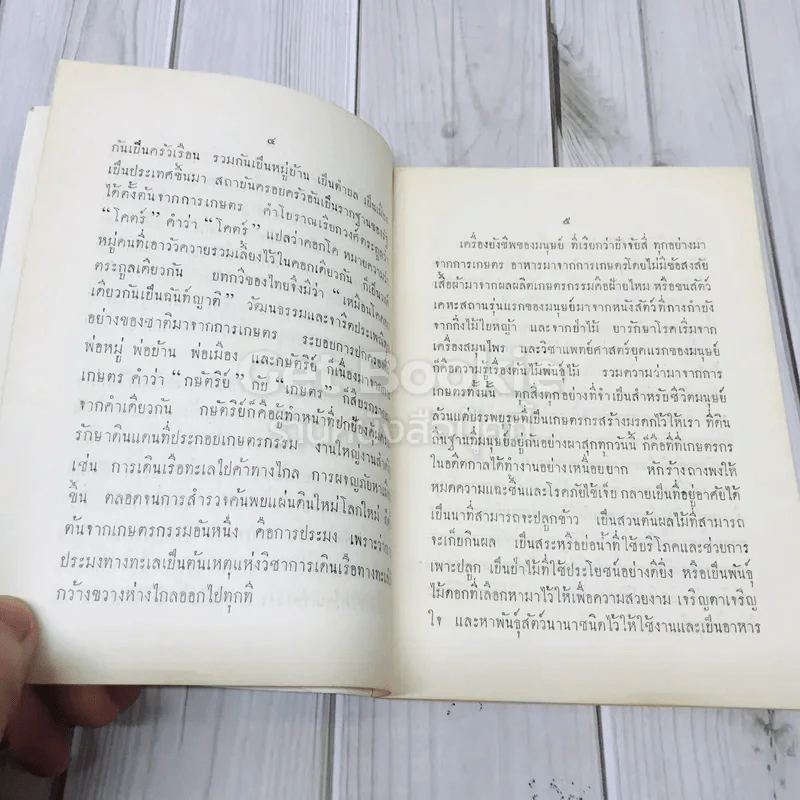 ๔
กันเป็นครัวเรือน รวมกันเป็นหมู่บ้าน เป็นตำบล เป็นเมือง
เป็นประเทศขึ้นมา สถาบันครอบครัวอันเป็นรากฐานของ
ได้ตั้งต้นจากการเกษตร คำโบราณเรียกวงศ์ตระกูลว่า
“โคตร์” คำว่า “โคตร์” แปลว่าคอกโค หมายความ
หมู่คนที่เอาวัวควายรวมเลี้ยงไว้ในคอกเดียวกัน ก็เป็น
ตระกูลเดียวกัน บทกวีของไทยจึงมีว่า “เหมือนโคคอก
เดียวกันเป็นฉันท์ญาติ” วัฒนธรรมและจารีตประเพณี
อย่างของชาติมาจากการเกษตร ระบอบการปกครอง
พ่อหมู่ พ่อบ้าน พ่อเมือง และกษัตริย์ ก็เนื่องมาจาก
เกษตร คำว่า “กษัตริย์” กับ “เกษตร” ก็สืบรากมา
จากคำเดียวกัน กษัตริย์ก็คือผู้ทำหน้าที่ปกป้องคุ้มครอง
รักษาดินแดนที่ประกอบเกษตรกรรม งานใหญ่งานสำคัญ
เช่น การเดินเรือทะเลไปค้าทางไกล การผจญภัยหา
ขึ้น ตลอดจนการสำรวจค้นพบแผ่นดินใหม่โลกใหม่ ก็
ต้นจากเกษตรกรรมอันหนึ่ง คือการประมง เพราะว่า
ประมงทางทะเลเป็นต้นเหตุแห่งวิชาการเดินเรือทางทะเล
กว้างขวางห่างไกลออกไปทุกที่
๕
เครื่องยังชีพของมนุษย์ ที่เรียกว่าปัจจัยสี่ ทุกอย่างมา
จากการเกษตร อาหารมาจากการเกษตรโดยไม่มีข้อสงสัย
เสื้อผ้ามาจากผลผลิตเกษตรกรรมคือฝ้ายไหม หรือขนสัตว์
เคหะสถานรุ่นแรกของมนุษย์มาจากหนังสัตว์ที่กางกำบัง
จากกิ่งไม้ใบหญ้า และจากป่าไม้ ยารักษาโรคเริ่มจาก
เครื่องสมุนไพร และวิชาแพทย์ศาสตร์ยุคแรกของมนุษย์
ก็คือความรู้เรื่องต้นไม้พันธุ์ไม้ รวมความว่ามาจากการ
เกษตรทั้งนั้น ทุกสิ่งทุกอย่างที่จำเป็นสำหรับชีวิตมนุษย์
ล้วนแต่บรรพบุรุษที่เป็นเกษตรกรสร้างมรดกไว้ให้เรา ที่ดิน
ถิ่นฐานที่มนุษย์อยู่กันอย่างผาสุกทุกวันนี้ ก็คือที่ที่เกษตรกร
ในอดีตกาลได้ทำงานอย่างเหนื่อยยาก หักร้างถางพงให้
หมดความแฉะชื้นและโรคภัยไข้เจ็บ กลายเป็นที่อยู่อาศัยได้
เป็นนาที่สามารถจะปลูกข้าว เป็นสวนต้นผลไม้ที่สามารถ
จะเก็บกินผล เป็นสระหรือบ่อน้ำที่ใช้บริโภคและช่วยการ
เพาะปลูก เป็นป่าไม้ที่ใช้ประโยชน์อย่างดียิ่ง หรือเป็นพันธุ์
ไม้ดอกที่เลือกหามาไว้ให้เพื่อความสวยงาม เจริญตาเจริญ
ใจ และหาพันธุ์สัตว์นานาชนิดไว้ให้ใช้งานและเป็นอาหาร
Get Bookie